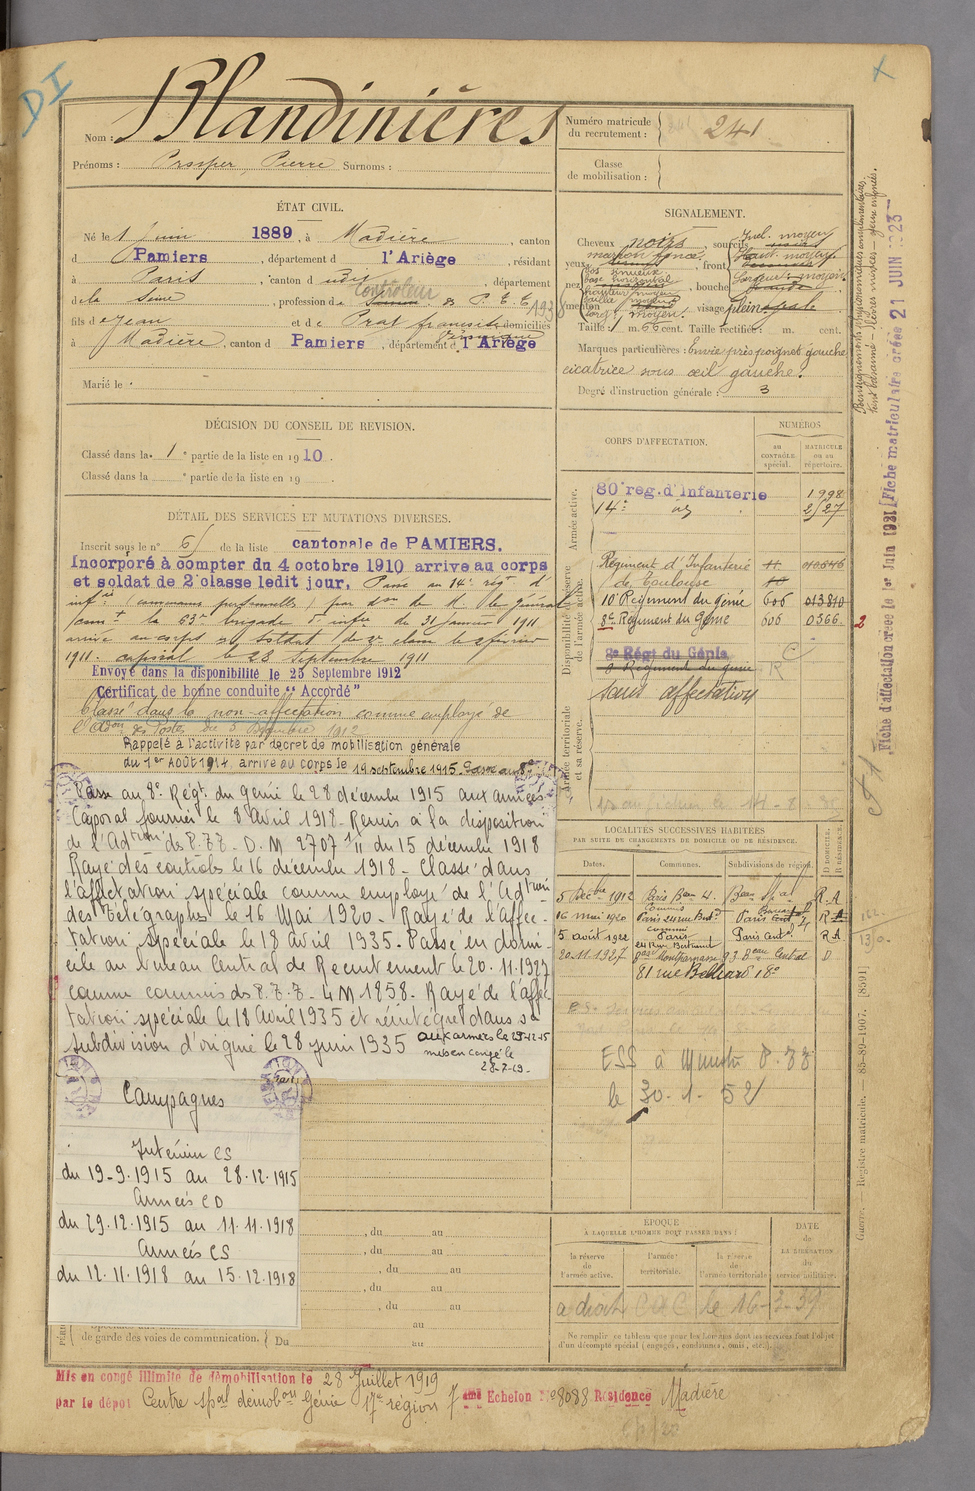 DI
Nom : Blandinières
Prénoms : Prosper, Pierre Surnoms :
Numéro matricule du recrutement : 241
Classe de mobilisation :
ÉTAT CIVIL.
Né le 1 Juin 1889, à Madière, canton
d Pamiers, département d l'Ariège, résidant
à Paris, canton d udit, département
de la Seine, profession de Contrôleur de P. T. T.
fils de Jean et de Prat françoise domiciliés
à Madière, canton d Pamiers, département d l'Ariège
Marié le
DÉCISION DU CONSEIL DE REVISION.
Classé dans la 1e partie de la liste en 1910.
Classé dans la e partie de la liste en 19
DÉTAIL DES SERVICES ET MUTATIONS DIVERSES.
Inscrit sous le n° 6 de la liste cantonale de PAMIERS.
Incorporé à compter du 4 octobre 1910 arrive au corps
et soldat de 2e classe ledit jour, Passé au 14e régt d'
infrie (convenances personnelles) par don de M. le général
Comt la 63e brigade d'infie du 31 janvier 1911
arrivé au corps et soldat de 2e classe le 2 février
1911. caporal le 28 Septembre 1911
Envoyé dans la disponibilité le 25 Septembre 1912
Certificat de bonne conduite "Accordé"
Classé dans la non-affectation comme employé de
l'Adon des Postes du 5 Décembre 1912
Rappelé à l'activité par décret de mobilisation générale
du 1er AOÛT 1914, arrivé au corps le 19 septembre 1915.
Passé au 8e Régt du génie le 28 décembre 1915 aux armées
Caporal fourrier le 8 Avril 1918. Remis à la disposition
de l'Adtion des P.T.T. D.M 2707 1/11 du 15 décembre 1918
Rayé des contrôles le 16 décembre 1918. Classé dans
l'affectation spéciale comme employé de l'Adtion
des Télégraphes le 16 Mai 1920. Rayé de l'affec-
tation spéciale le 18 avril 1935. Passé en domi-
cile au bureau Central de Recrutement le 20.11.1927
comme commis des P.T.T. 4M 1258. Rayé de l'affec
tation spéciale le 18 Avril 1935 et réintégré dans sa
subdivision d'origine le 28 juin 1935 aux armées le 29-12-15
mis en congé le
28-7-19.
Campagnes
Intérieur CS
du 19-9-1915 au 28.12.1915
Armées CD
du 29.12.1915 au 11.11.1918
Armées CS
du 12.11.1918 au 15.12.1918
, du au
, du au
, du au
, du au
, du au
au
de garde des voies de communication. Du au
SIGNALEMENT.
Cheveux noirs, sourcils
yeux marron foncé, front
nez, bouche
menton, visage plein
Taille : 1 m. 66 cent. Taille rectifiée : m. cent.
Marques particulières : Envie près poignet gauche
cicatrice sous œil gauche.
Degré d'instruction générale : 3
CORPS D'AFFECTATION.
NUMÉROS
au contrôle spécial.
matricule ou au répertoire.
Armée active.
80e rég. d'Infanterie 1998
14e id 2127
Disponibilité et réserve de l'armée active.
Régiment d'Infanterie
de Toulouse
10e Régiment du génie 606 013810
8e Régiment du Génie 606 0366
2
8e Régt du Génie
8 Régiment du génie
Sans affectation
Armée territoriale et sa réserve.
LOCALITÉS SUCCESSIVES HABITÉES
PAR SUITE DE CHANGEMENTS DE DOMICILE OU DE RÉSIDENCE.
Dates. Communes. Subdivisions de région. D. DOMICILE. R. RÉSIDENCE.
5 Décbre 1912 Paris R A
16 mai 1920 Paris 24 rue Bertd Paris R A
5 août 1922 Paris Paris Cental R A
24 Rue Bertrand
20.11.1927 Montparnasse 93 Beau Central D
81 rue Belliard 18e
ESS à
le 30.1.52
ÉPOQUE
À LAQUELLE L'HOMME DOIT PASSER DANS :
la réserve de l'armée active.
l'armée territoriale.
la réserve de l'armée territoriale
DATE de LA LIBÉRATION du service militaire.
a droit CAC le 16-3-39
Ne remplir ce tableau que pour les hommes dont les services font l'objet
d'un décompte spécial (engagés, condamnés, omis, etc.).
Renseignements physionomiques complémentaires.
Fiche d'affectation créée le 1er Juin 1931
Fiche matriculaire créée 21 JUIN 1923
Guerre. — Registre matricule. — 85-89-1907. [8591]
Mis en congé illimité de démobilisation le 28 Juillet 1919
par le dépôt Centre spal démobon Génie 17e région 7ème Echelon No 8088 Résidence Madière